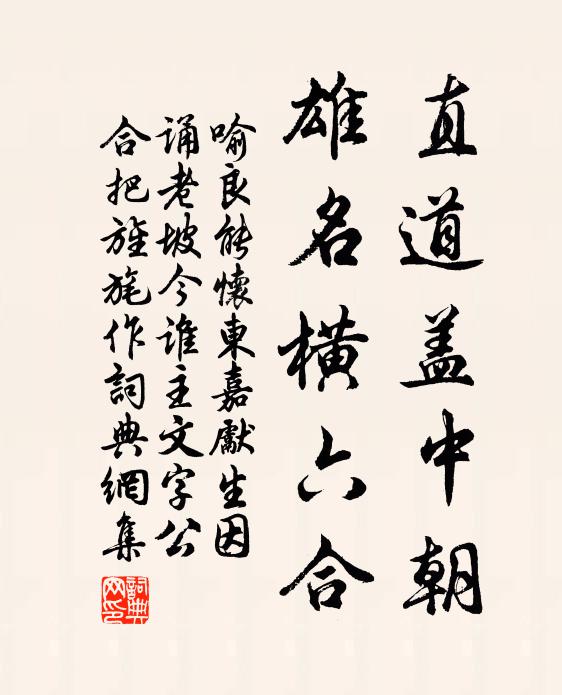 直道盖中朝
雄名橫六合
喻良能懷東嘉獻生因
誦老坡今誰主文字公
合把旌旄作詞典網集
詞典網印